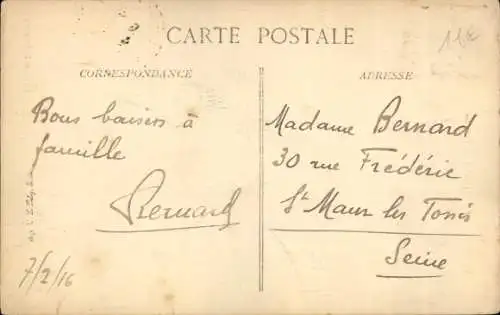 CARTE POSTALE
CORRESPONDANCE
ADRESSE
Bons baisers à
famille
Bernard
7/2/16
Madame Bernard
30 rue Frédéric
St Maur les Fossés
Seine